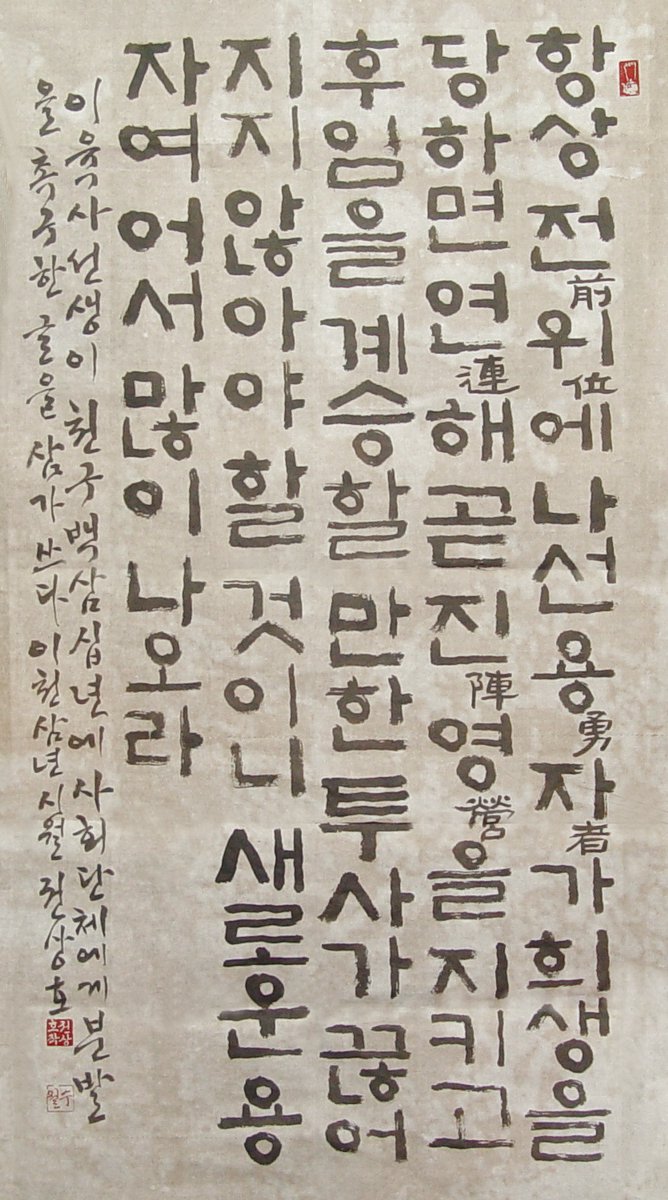 항상 전前위位에 나선 용勇자者가 희생을
당하면 연連해 곧 진陣영營을 지키고
후임을 계승할 만한 투사가 끊어
지지 않아야 할 것이니 새로운 용
자여 어서 많이 나오라
이육사선생이 천구백삼십년에 사회단체에게 분발
을 촉구한 글을 삼가 쓰다 이천삼년 시월 권상호